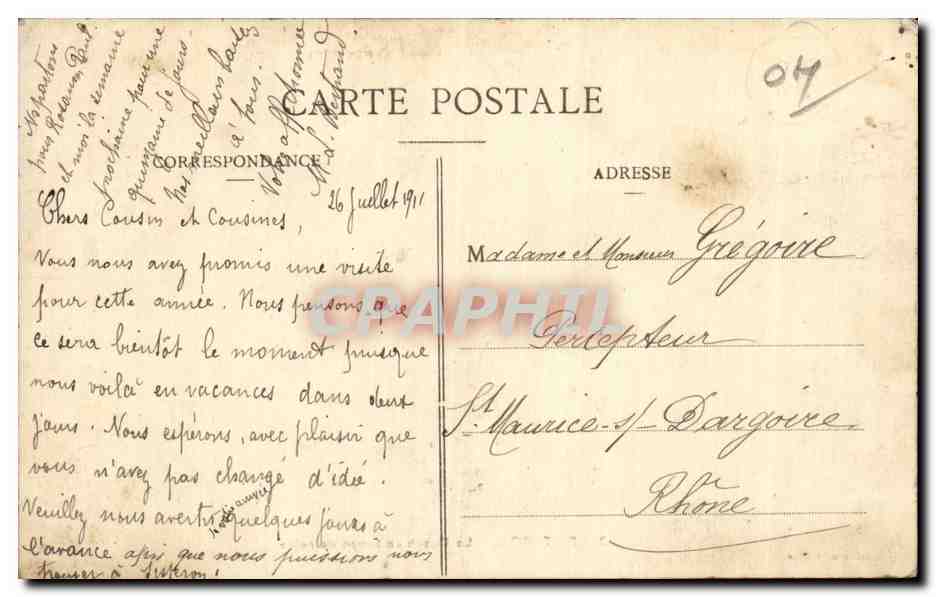 Ns partons
puis Rosanon Paul
et moi la semaine
prochaine pour une
quinzaine de jours.
Nos meilleurs baisers
à tous.
Votre aff.
M. L.
04
CARTE POSTALE
CORRESPONDANCE
ADRESSE
26 Juillet 1911
Chers Cousin et Cousines,
Vous nous avez promis une visite
pour cette année. Nous pensons que
ce sera bientôt le moment puisque
nous voilà en vacances dans deux
jours. Nous espérons, avec plaisir que
vous n'avez pas changé d'idée.
Veuillez nous avertir quelques jours à
l'avance afin que nous puissions nous
trouver à Sisteron!
Madame et Monsieur Grégoire
Percepteur
St Maurice-s/-Dargoire
Rhône
CPAPHIL